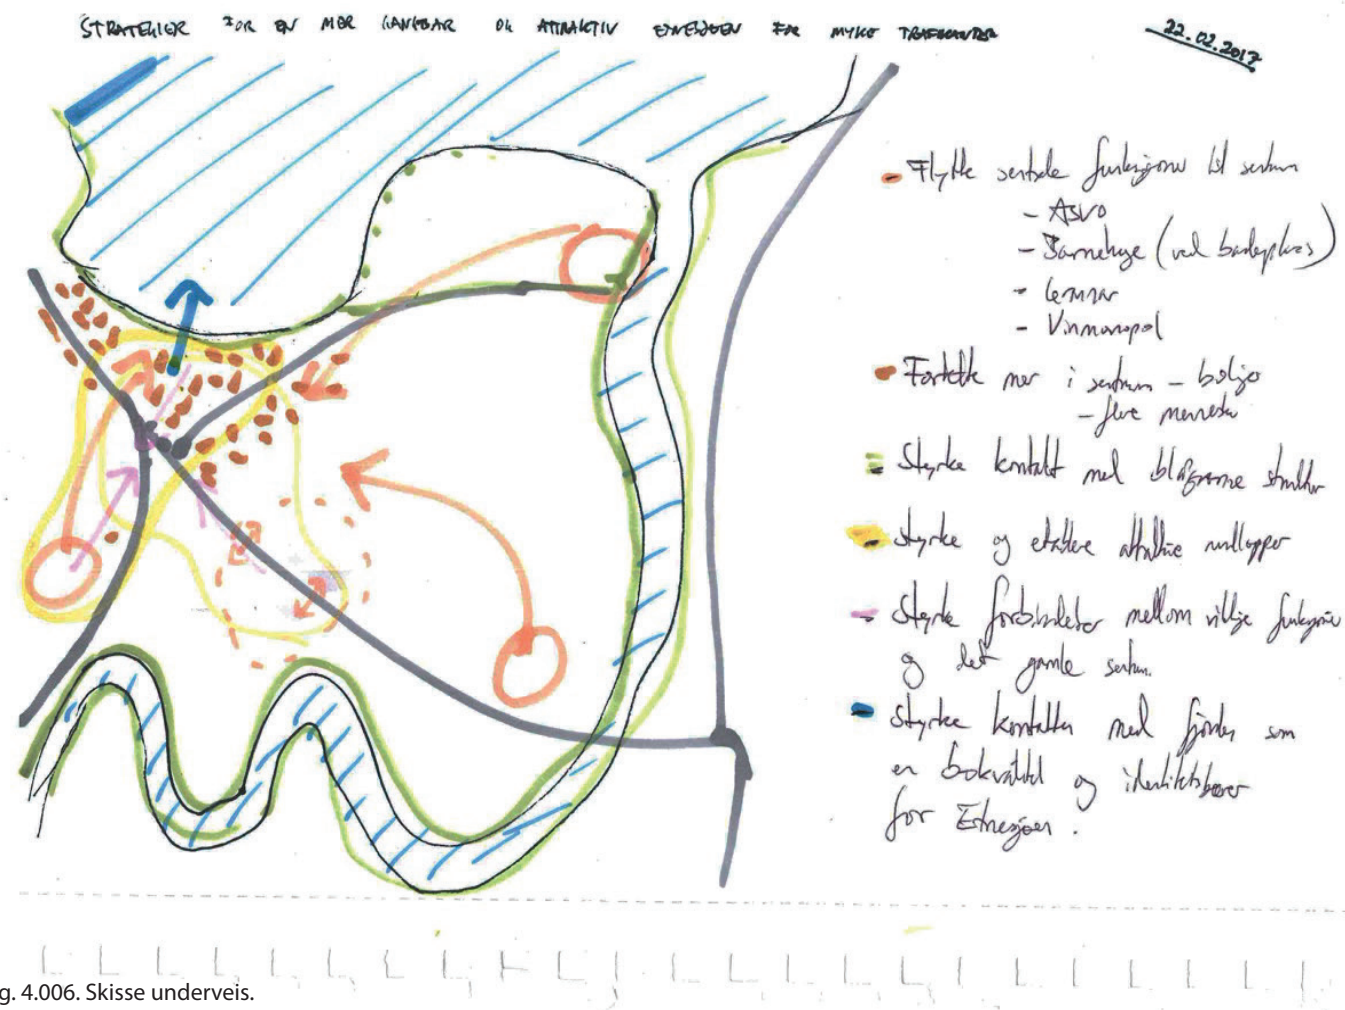 STRATEGIER FOR EN MER GANGBAR OG ATTRAKTIV ETNESJØEN FOR MYKE TRAFIKANTER
22.02.2017
- Flytte sentrale funksjoner til sentrum
- ASVO
- Barnehage (ved badeplass)
-
- Vinmonopol
Fortette mer i sentrum - boliger
- flere mennesker
Styrke kontakt med blågrønne struktur
Styrke og etablere attraktive rundløyper
Styrke forbindelser mellom viktige funksjoner
og det gamle sentrum.
Styrke kontakten med fjorden som
en bokvalitet og identitetsbærer
for Etnesjøen.
g. 4.006. Skisse underveis.